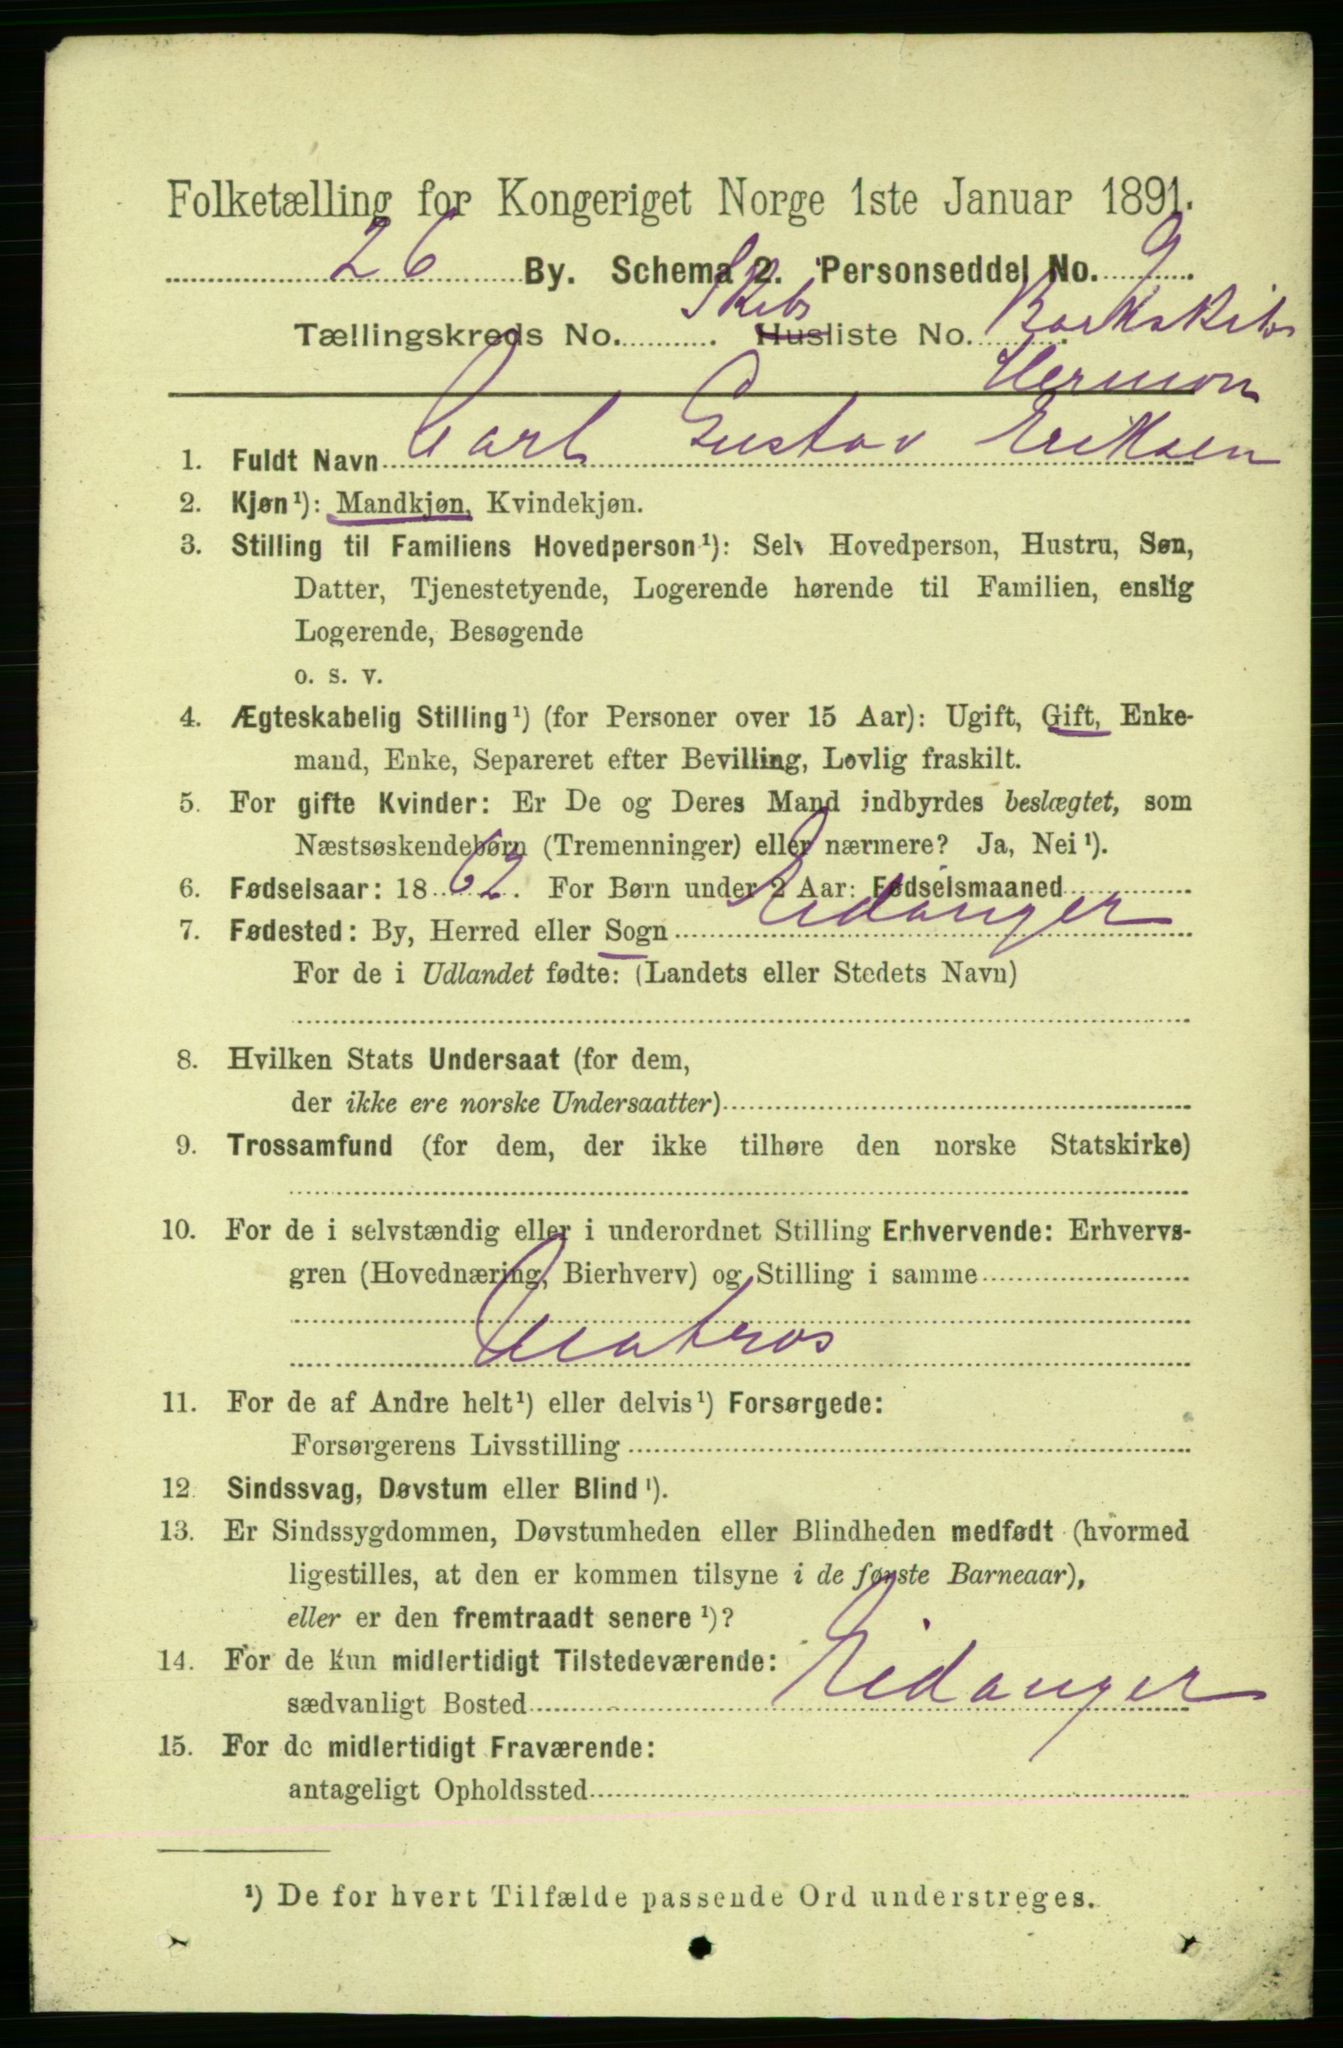 Folketælling for Kongeriget Norge 1ste Januar 1891.
26 By. Schema 2. Personseddel No. 9.
Tællingskreds No. . Skibs Husliste No. Barkskib
Hermon
1. Fuldt Navn Carl Gustav Eriksen
2. Kjøn¹): Mandkjøn, Kvindekjøn.
3. Stilling til Familiens Hovedperson¹): Selv Hovedperson, Hustru, Søn,
Datter, Tjenestetyende, Logerende hørende til Familien, enslig
Logerende, Besøgende
o. s. v.
4. Ægteskabelig Stilling¹) (for Personer over 15 Aar): Ugift, Gift, Enke-
mand, Enke, Separeret efter Bevilling, Lovlig fraskilt.
5. For gifte Kvinder: Er De og Deres Mand indbyrdes beslægtet, som
Næstsøskendebørn (Tremenninger) eller nærmere? Ja, Nei¹).
6. Fødselsaar: 1862. For Børn under 2 Aar: Fødselsmaaned
7. Fødested: By, Herred eller Sogn Eidanger
For de i Udlandet fødte: (Landets eller Stedets Navn)
8. Hvilken Stats Undersaat (for dem,
der ikke ere norske Undersaatter)
9. Trossamfund (for dem, der ikke tilhøre den norske Statskirke)
10. For de i selvstændig eller i underordnet Stilling Erhvervende: Erhvervs-
gren (Hovednæring, Bierhverv) og Stilling i samme
Matros
11. For de af Andre helt¹) eller delvis¹) Forsørgede:
Forsørgerens Livsstilling
12. Sindssvag, Døvstum eller Blind¹).
13. Er Sindssygdommen, Døvstumheden eller Blindheden medfødt (hvormed
ligestilles, at den er kommen tilsyne i de første Barneaar),
eller er den fremtraadt senere¹)?
14. For de kun midlertidigt Tilstedeværende:
sædvanligt Bosted Eidanger
15. For de midlertidigt Fraværende:
antageligt Opholdssted
¹) De for hvert Tilfælde passende Ord understreges.